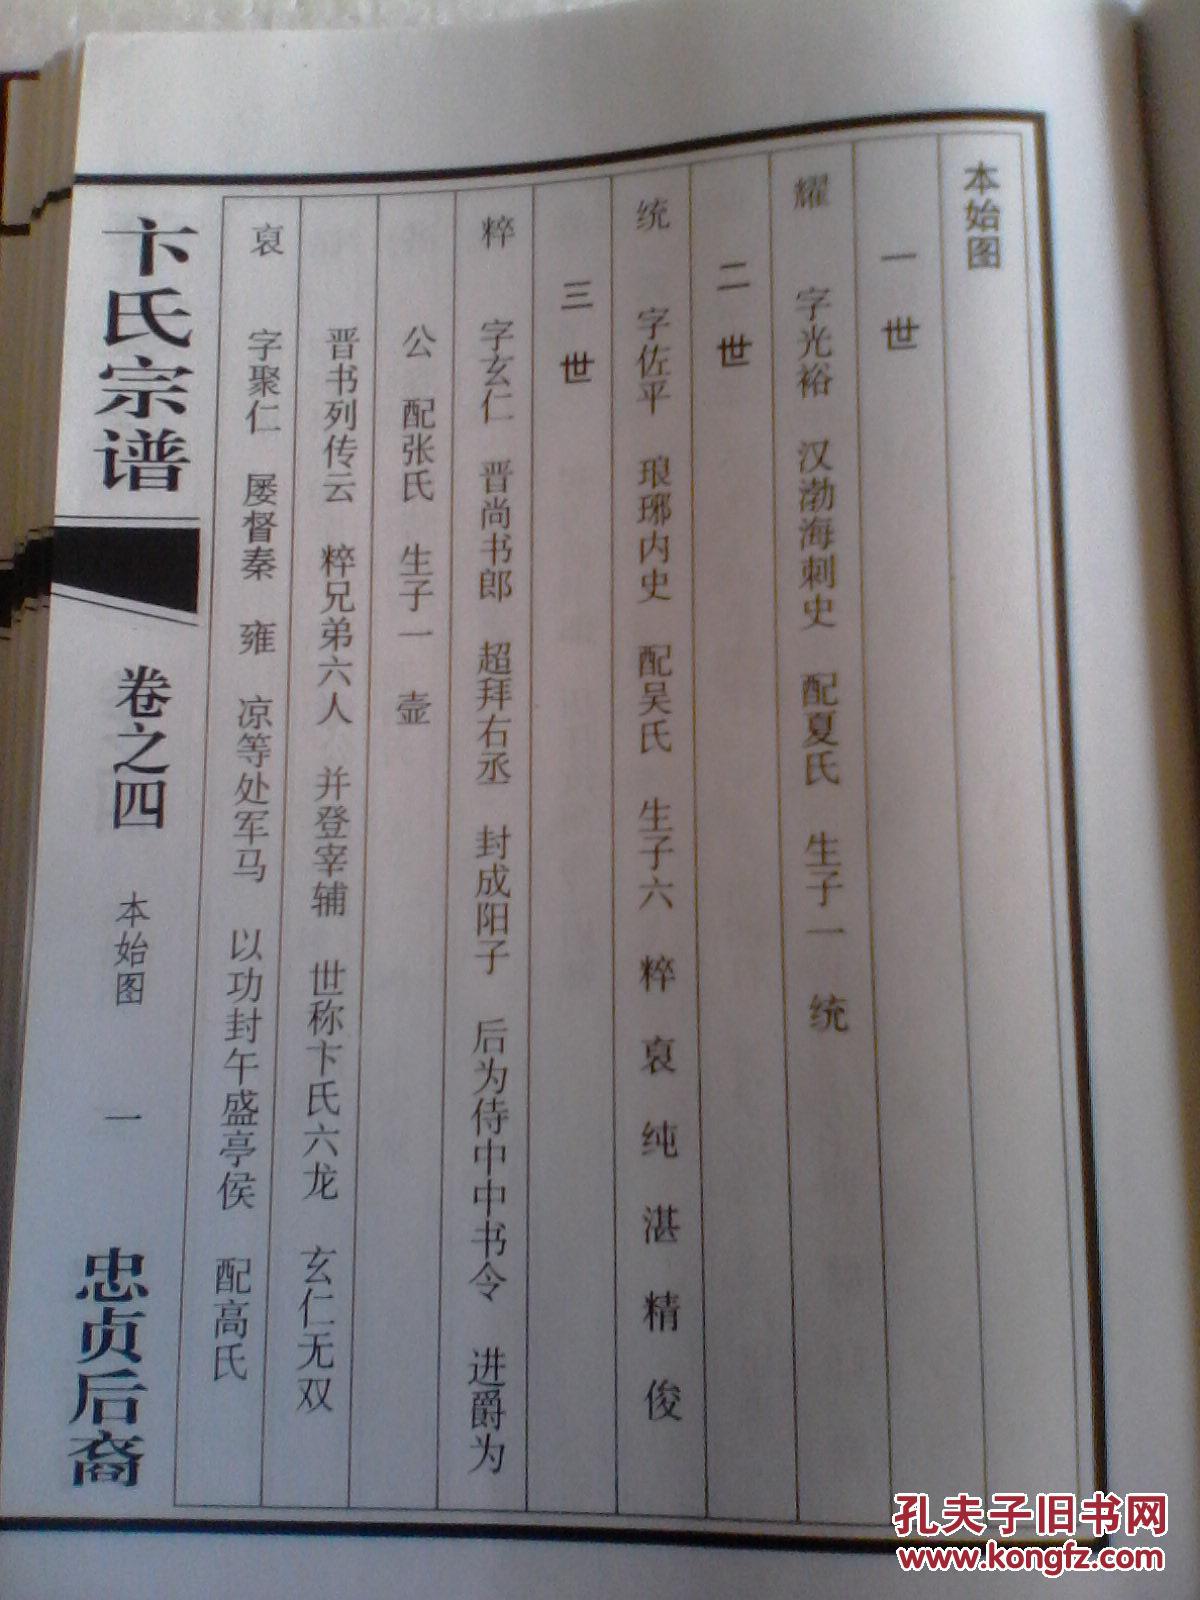 本始图
一世
耀 字光裕 汉渤海刺史 配夏氏 生子一 统
二世
统 字佐平 琅琊内史 配吴氏 生子六 粹 裒 纯 湛 精 俊
三世
粹 字玄仁 晋尚书郎 超拜右丞 封成阳子 后为侍中中书令 进爵为
公 配张氏 生子一 壶
晋书列传云 粹兄弟六人 并登宰辅 世称卞氏六龙 玄仁无双
裒 字聚仁 屡督秦 雍 凉等处军马 以功封午盛亭侯 配高氏
卞氏宗谱 卷之四 本始图 一 忠贞后裔
孔夫子旧书网
www.kongfz.com